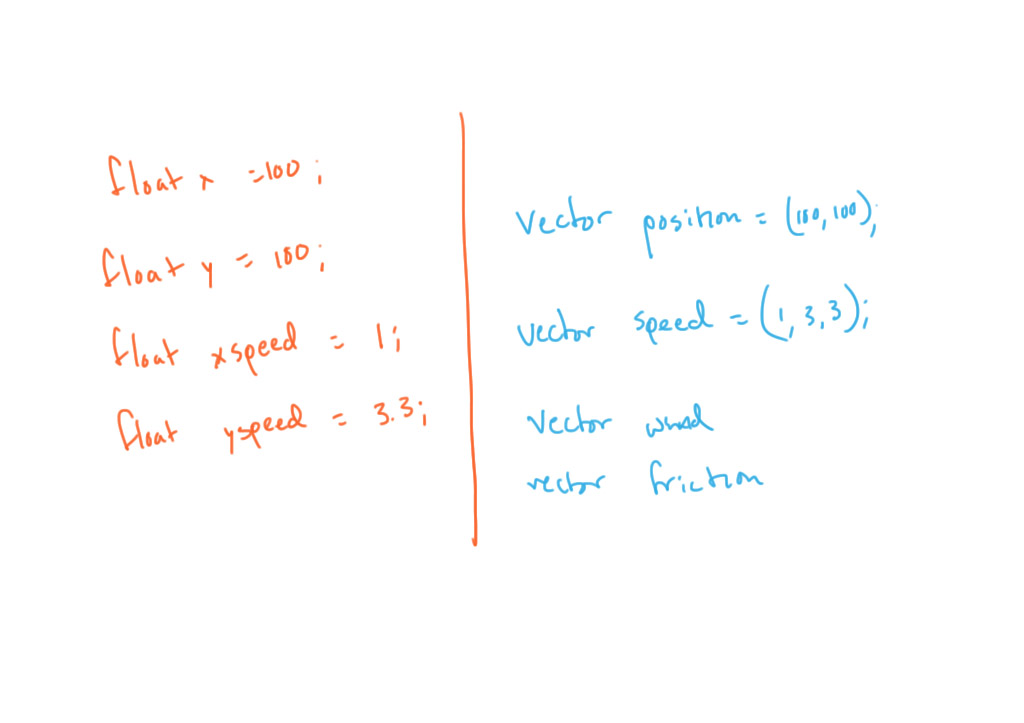 float x = 100;
float y = 100;
float xspeed = 1;
float yspeed = 3.3;
vector position = (100, 100);
vector speed = (1, 3, 3);
vector wind
vector friction